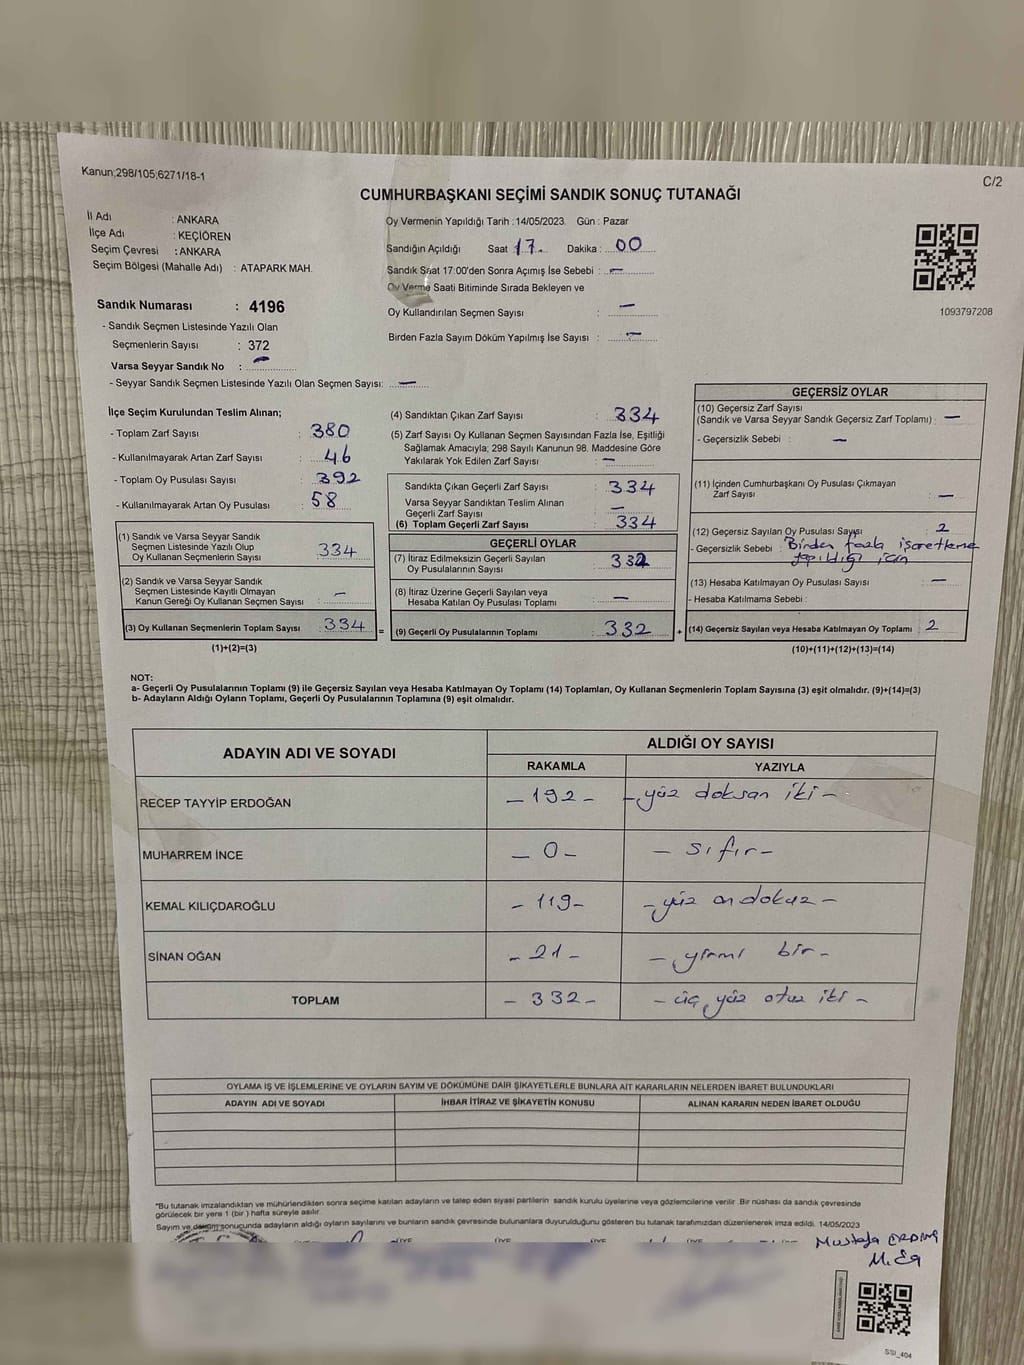 Kanun;298/105;6271/18-1
C/2
CUMHURBAŞKANI SEÇİMİ SANDIK SONUÇ TUTANAĞI
İl Adı : ANKARA
İlçe Adı : KEÇİÖREN
Seçim Çevresi : ANKARA
Seçim Bölgesi (Mahalle Adı) : ATAPARK MAH.
Sandık Numarası : 4196
- Sandık Seçmen Listesinde Yazılı Olan
Seçmenlerin Sayısı : 372
Varsa Seyyar Sandık No : —
- Seyyar Sandık Seçmen Listesinde Yazılı Olan Seçmen Sayısı: —
Oy Vermenin Yapıldığı Tarih : 14/05/2023. Gün : Pazar
Sandığın Açıldığı Saat 17. Dakika : 00
Sandık Saat 17:00'den Sonra Açımış İse Sebebi : —
Oy Verme Saati Bitiminde Sırada Bekleyen ve
Oy Kullandırılan Seçmen Sayısı : —
Birden Fazla Sayım Döküm Yapılmış İse Sayısı : —
1093797208
İlçe Seçim Kurulundan Teslim Alınan;
- Toplam Zarf Sayısı : 380
- Kullanılmayarak Artan Zarf Sayısı : 46
- Toplam Oy Pusulası Sayısı : 392
- Kullanılmayarak Artan Oy Pusulası : 58
(1) Sandık ve Varsa Seyyar Sandık
Seçmen Listesinde Yazılı Olup
Oy Kullanan Seçmenlerin Sayısı : 334
(2) Sandık ve Varsa Seyyar Sandık
Seçmen Listesinde Kayıtlı Olmayan
Kanun Gereği Oy Kullanan Seçmen Sayısı : —
(3) Oy Kullanan Seçmenlerin Toplam Sayısı : 334
(1)+(2)=(3)
(4) Sandıktan Çıkan Zarf Sayısı : 334
(5) Zarf Sayısı Oy Kullanan Seçmen Sayısından Fazla İse, Eşitliği
Sağlamak Amacıyla; 298 Sayılı Kanunun 98. Maddesine Göre
Yakılarak Yok Edilen Zarf Sayısı : —
Sandıkta Çıkan Geçerli Zarf Sayısı : 334
Varsa Seyyar Sandıktan Teslim Alınan
Geçerli Zarf Sayısı : —
(6) Toplam Geçerli Zarf Sayısı : 334
GEÇERLİ OYLAR
(7) İtiraz Edilmeksizin Geçerli Sayılan
Oy Pusulalarının Sayısı : 332
(8) İtiraz Üzerine Geçerli Sayılan veya
Hesaba Katılan Oy Pusulası Toplamı : —
= (9) Geçerli Oy Pusulalarının Toplamı : 332 +
GEÇERSİZ OYLAR
(10) Geçersiz Zarf Sayısı
(Sandık ve Varsa Seyyar Sandık Geçersiz Zarf Toplamı) : —
- Geçersizlik Sebebi : —
(11) İçinden Cumhurbaşkanı Oy Pusulası Çıkmayan
Zarf Sayısı : —
(12) Geçersiz Sayılan Oy Pusulası Sayısı : 2
- Geçersizlik Sebebi : Birden fazla işaretleme
yapıldığı için
(13) Hesaba Katılmayan Oy Pusulası Sayısı : —
- Hesaba Katılmama Sebebi :
(14) Geçersiz Sayılan veya Hesaba Katılmayan Oy Toplamı : 2
(10)+(11)+(12)+(13)=(14)
NOT:
a- Geçerli Oy Pusulalarının Toplamı (9) ile Geçersiz Sayılan veya Hesaba Katılmayan Oy Toplamı (14) Toplamları, Oy Kullanan Seçmenlerin Toplam Sayısına (3) eşit olmalıdır. (9)+(14)=(3)
b- Adayların Aldığı Oyların Toplamı, Geçerli Oy Pusulalarının Toplamına (9) eşit olmalıdır.
ADAYIN ADI VE SOYADI
ALDIĞI OY SAYISI
RAKAMLA YAZIYLA
RECEP TAYYİP ERDOĞAN – 192 – – yüz doksan iki –
MUHARREM İNCE – 0 – – sıfır –
KEMAL KILIÇDAROĞLU – 119 – – yüz on dokuz –
SİNAN OĞAN – 21 – – yirmi bir –
TOPLAM – 332 – – üç yüz otuz iki –
OYLAMA İŞ VE İŞLEMLERİNE VE OYLARIN SAYIM VE DÖKÜMÜNE DAİR ŞİKAYETLERLE BUNLARA AİT KARARLARIN NELERDEN İBARET BULUNDUKLARI
ADAYIN ADI VE SOYADI İHBAR İTİRAZ VE ŞİKAYETİN KONUSU ALINAN KARARIN NEDEN İBARET OLDUĞU
*Bu tutanak imzalandıktan ve mühürlendikten sonra seçime katılan adayların ve talep eden siyasi partilerin sandık kurulu üyelerine veya gözlemcilerine verilir. Bir nüshası da sandık çevresinde
görülecek bir yere 1 (bir) hafta süreyle asılır.
Sayım ve döküm sonucunda adayların aldığı oyların sayılarını ve bunların sandık çevresinde bulunanlara duyurulduğunu gösteren bu tutanak tarafımızdan düzenlenerek imza edildi. 14/05/2023
Mustafa
SSI_404